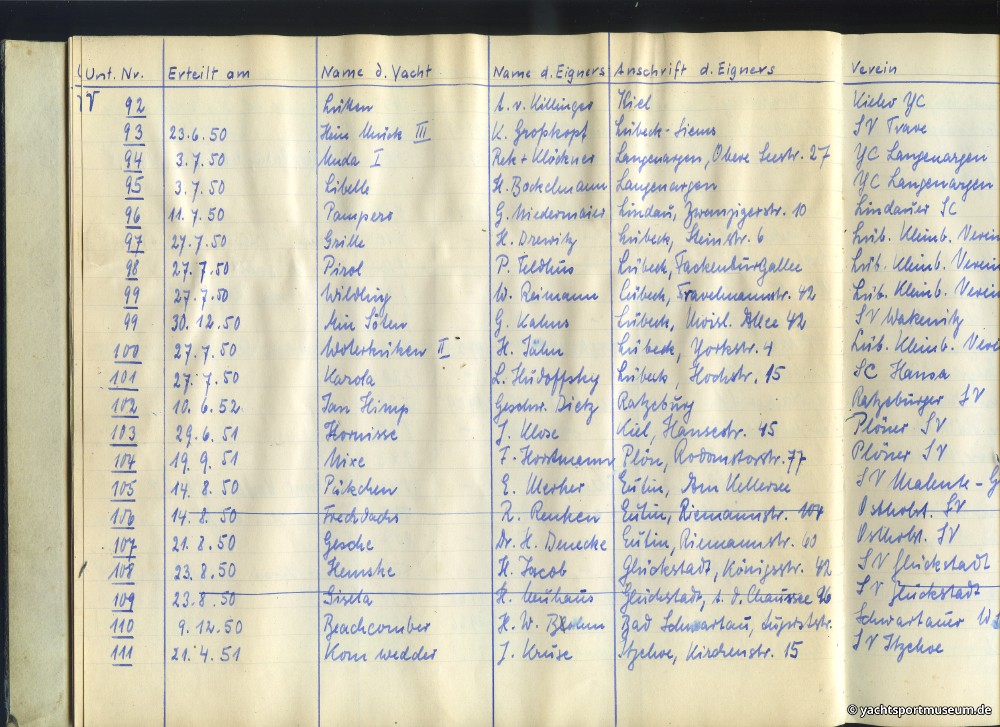 Unt. Nr. Erteilt am Name d. Yacht Name d. Eigners Anschrift d. Eigners Verein
V 92 Lütten A. v. Killinger Kiel Kieler YC
93 23.6.50 Hein Mück III K. Großkopf Lübeck-Siems SV Trave
94 3.7.50 Muda I Rek + Klöckner Langenargen, Obere Seestr. 27 YC Langenargen
95 3.7.50 Libelle H. Bockelmann Langenargen YC Langenargen
96 11.7.50 Pampero G. Niedermaier Lindau, Zwanzigerstr. 10 Lindauer SC
97 27.7.50 Grille H. Drewitz Lübeck, Steinstr. 6 Lüb. Kleinb. Verein
98 27.7.50 Pirol P. Feldhus Lübeck, Fackenburgallee Lüb. Kleinb. Verein
99 27.7.50 Wildling W. Reimann Lübeck, Travelmannstr. 42 Lüb. Kleinb. Verein
99 30.12.50 Min Söten G. Kahns Lübeck, Moisl. Allee 42 SV Wakenitz
100 27.7.50 Woterküken II H. Jähn Lübeck, Yorkstr. 4 Lüb. Kleinb.
101 27.7.50 Karola L. Hudoffsky Lübeck, Hochstr. 15 SC Hansa
102 10.6.52 Jan Himp Geschw. Dietz Ratzeburg Ratzeburger SV
103 29.6.51 Hornisse J. Klose Kiel, Hansestr. 45 Plöner SV
104 19.9.51 Nixe F. Horstmann Plön, Rodomstorstr. 77 Plöner SV
105 14.8.50 Pükchen E. Merker Eutin, Am Kellersee SV Malente-G
106 14.8.50 Frechdachs R. Renken Eutin, Riemannstr. 101 Ostholst. SV
107 21.8.50 Gesche Dr. H. Denecke Eutin, Riemannstr. 60 Ostholst. SV
108 23.8.50 Hemske H. Jacob Glückstadt, Königsstr. 42 SV Glückstadt
109 23.8.50 Gisela H. Neuhaus Glückstadt, A. d. Chaussee 96 SV Glückstadt
110 9.12.50 Beachcomber H. W. Bad Schwartau, Auguststr. Schwartauer
111 21.4.51 Kom wedder J. Kruse Itzehoe, Kirchenstr. 15 SV Itzehoe
© yachtsportmuseum.de